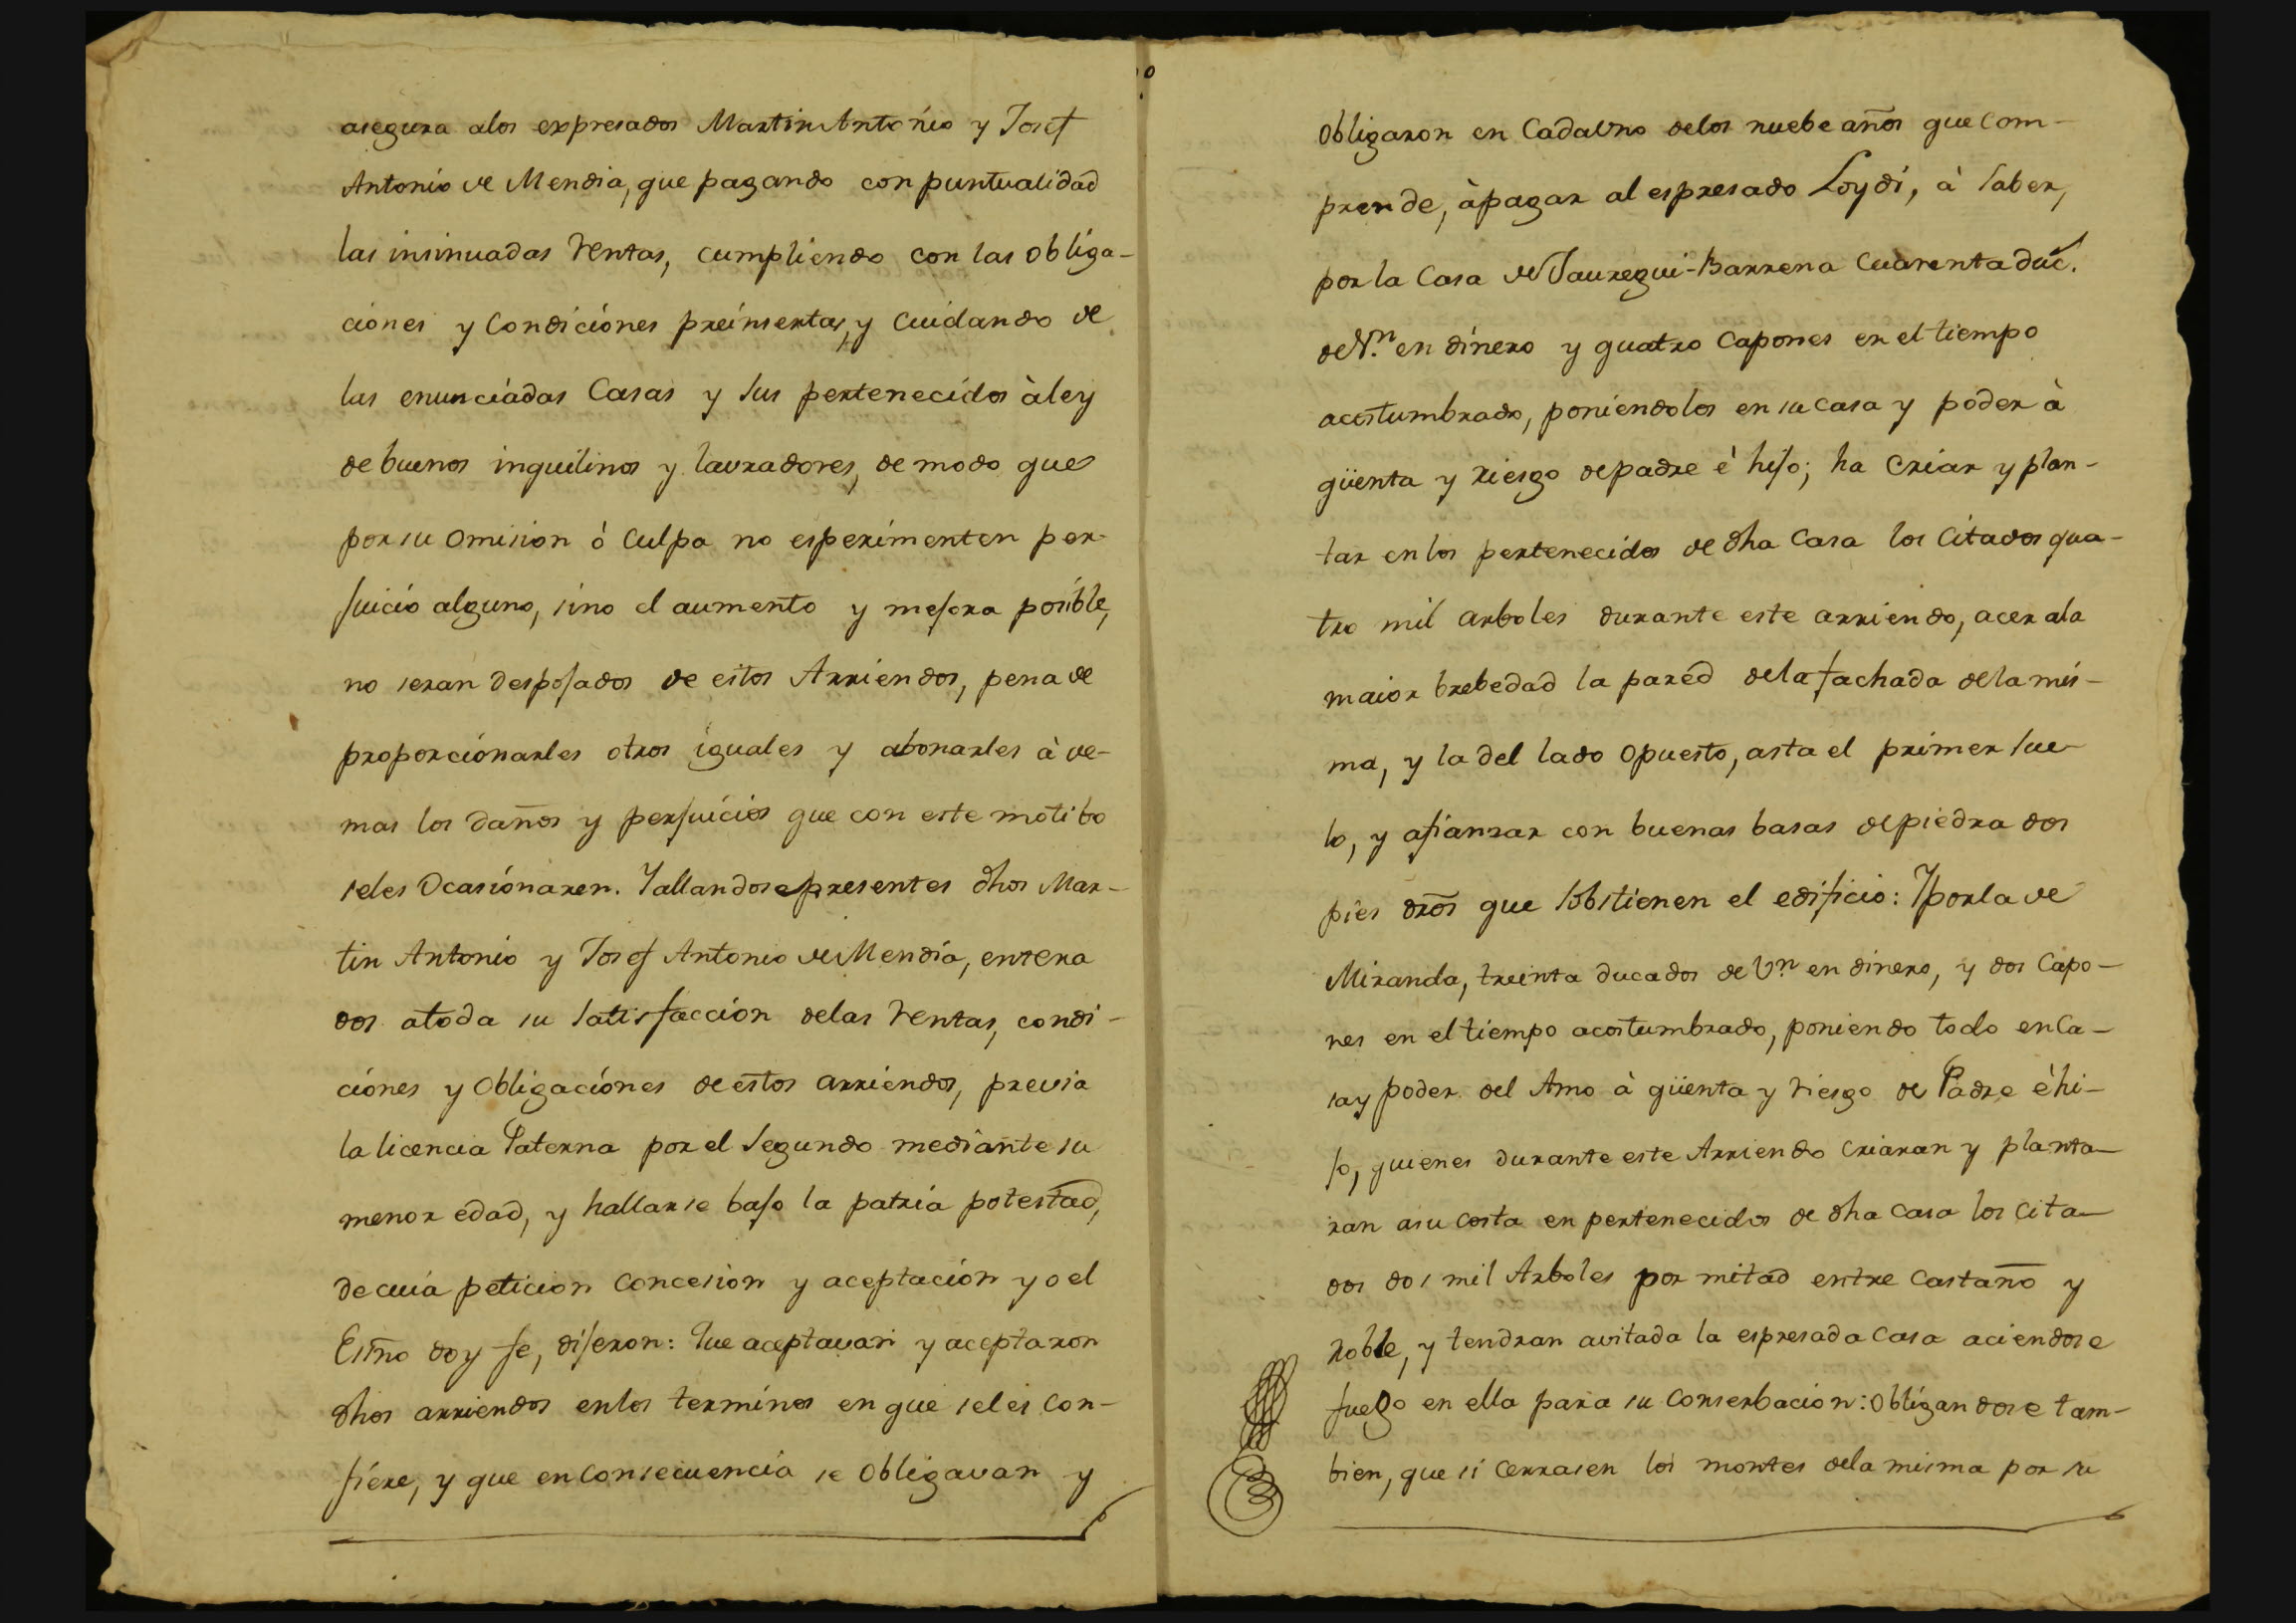 asegura alos expresados Martin Antonio y Josef
Antonio de Mendia, que pagando con puntualidad
las insinuadas rentas, cumpliendo con las obliga-
ciones y Condiciones preinsertas, y cuidando de
las enunciadas Casas y sus pertenecidos à ley
de buenos inquilinos y lavradores, de modo que
por su omision ò culpa no esperimenten per-
juicio alguno, sino el aumento y mejora posible,
no seran despojados de estos Arriendos, pena de
proporcionarles otros iguales y abonarles à de-
mas los daños y perjuicios que con este motibo
seles Ocasionaren. Yallandose presentes dhos Mar-
tin Antonio y Josef Antonio de Mendia, entera
dos atoda su satisfaccion delas rentas, condi-
ciones y Obligaciones de estos arriendos, previa
la licencia Paterna por el Segundo mediante su
menor edad, y hallarse bajo la patria potestad,
de cuia peticion concesion y aceptacion yo el
Esño doy fe, dijeron: Que aceptavan y aceptaron
dhos arriendos enlos terminos en que seles con-
fiere, y que en Consecuencia se obligavan y
obligaron en Cadauno delos nuebe años que com-
prende, àpagar al espresado Loydi, à saber,
por la Casa de Jauregui-Barrena Cuarenta duc.
de V.n en dinero y quatro Capones en el tiempo
acostumbrado, poniendolos en su casa y poder à
güenta y riesgo de padre è hijo; ha Criar y plan-
tar en los pertenecidos de dha Casa los Citados qua-
tro mil arboles durante este arriendo, acer ala
maior brebedad la pared dela fachada dela mis-
ma, y la del lado opuesto, asta el primer sue-
lo, y afianzar con buenas basas de piedra dos
pies dros que sobstienen el edificio: Y por la de
Miranda, treinta ducados de V.n en dinero, y dos Capo-
nes en el tiempo acostumbrado, poniendo todo en Ca-
sa y poder del Amo à güenta y riesgo de Padre è hi-
jo, quienes durante este Arriendo criaran y planta-
ran asu costa en pertenecidos de dha casa los cita-
dos dos mil Arboles por mitad entre Castaño y
roble, y tendran avitada la espresada Casa aciendose
fuego en ella para su Conserbacion: obligandose tam-
bien, que si cerrasen los montes dela misma por su